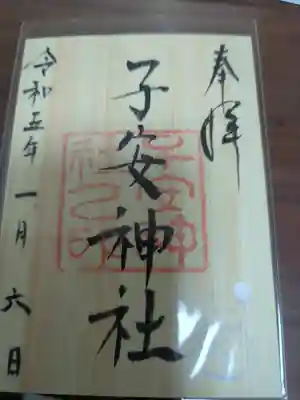 奉拝
子安神社
令和五年 一月 六日